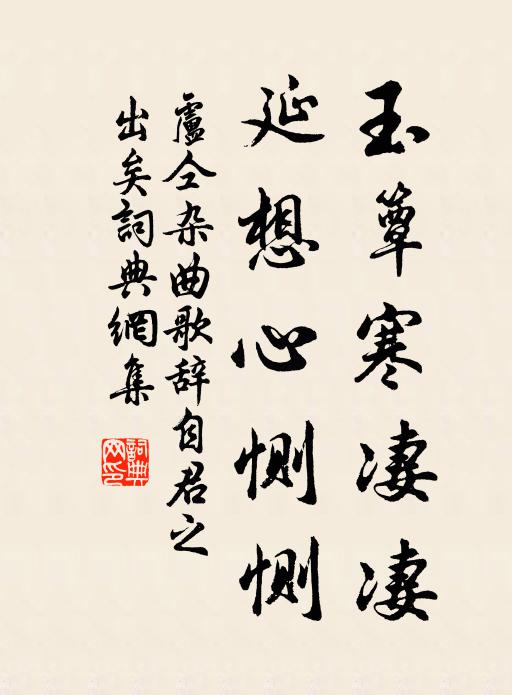 玉簟寒凄凄
延想心恻恻
盧仝杂曲歌辞自君之
出矣詞典網集
詞典網印